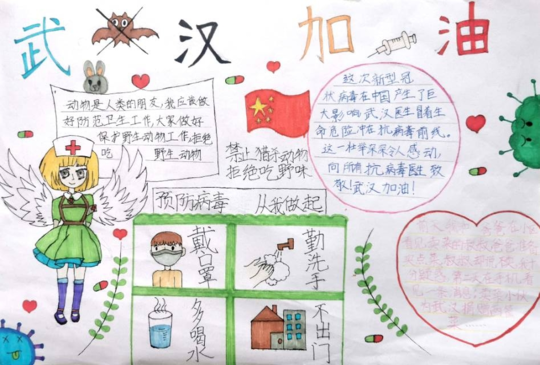 武汉加油
动物是人类的朋友,我应该做
好防范卫生工作,大家做好
保护野生动物工作,拒绝
吃野生动物
禁止猎杀动物
拒绝吃野味
这次新型冠
状病毒在中国产生了巨
大影响武汉医生冒着生
命危险冲在抗病毒前线。
这一种举采令人感动,
向所有抗病毒医生致
敬!武汉加油!
预防病毒 从我做起
戴口罩
勤洗手
多喝水
不出门